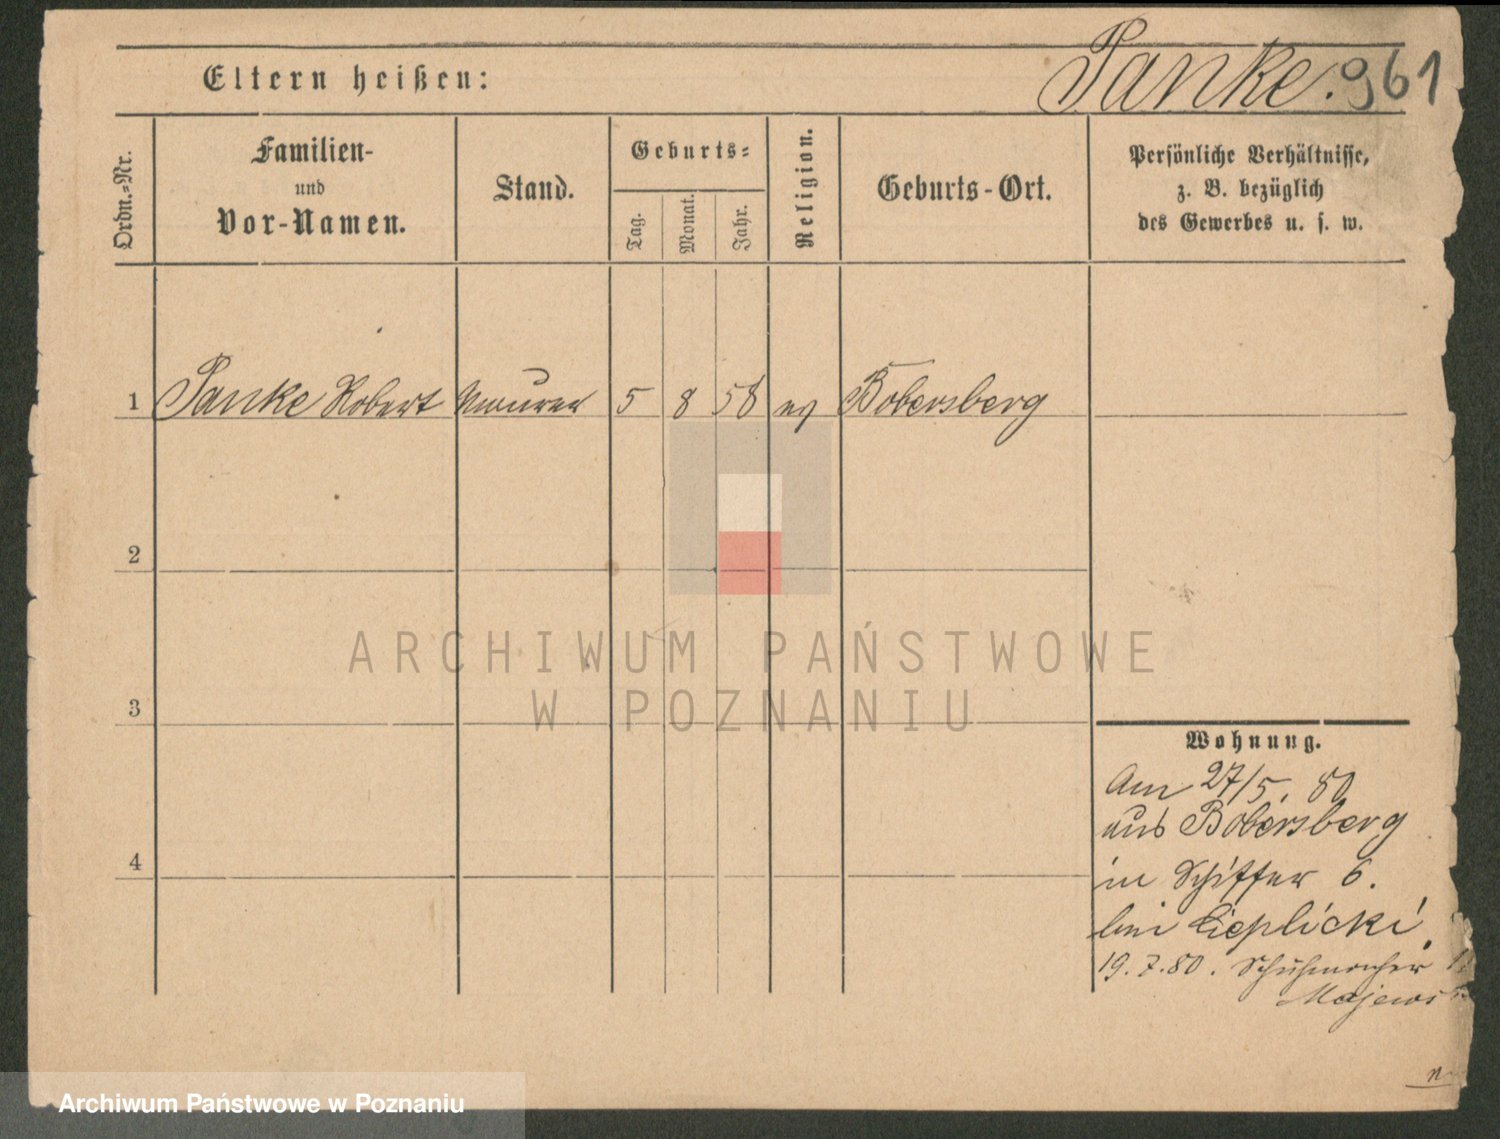 Eltern heißen:
Panke. 961
Ordn.-Nr.
Familien-
und
Vor-Namen.
Stand.
Geburts-
Tag.
Monat.
Jahr.
Religion.
Geburts-Ort.
Persönliche Verhältnisse,
z. B. bezüglich
des Gewerbes u. s. w.
1 Panke Robert Maurer 5 8 58 ev Bobersberg
2
3
4
ARCHIWUM PAŃSTWOWE
W POZNANIU
Wohnung.
Am 27/5. 80
aus Bobersberg
in Schiffer 6.
bei Cieplicki
19. 7. 80. Schuhmacher
Majews
Archiwum Państwowe w Poznaniu